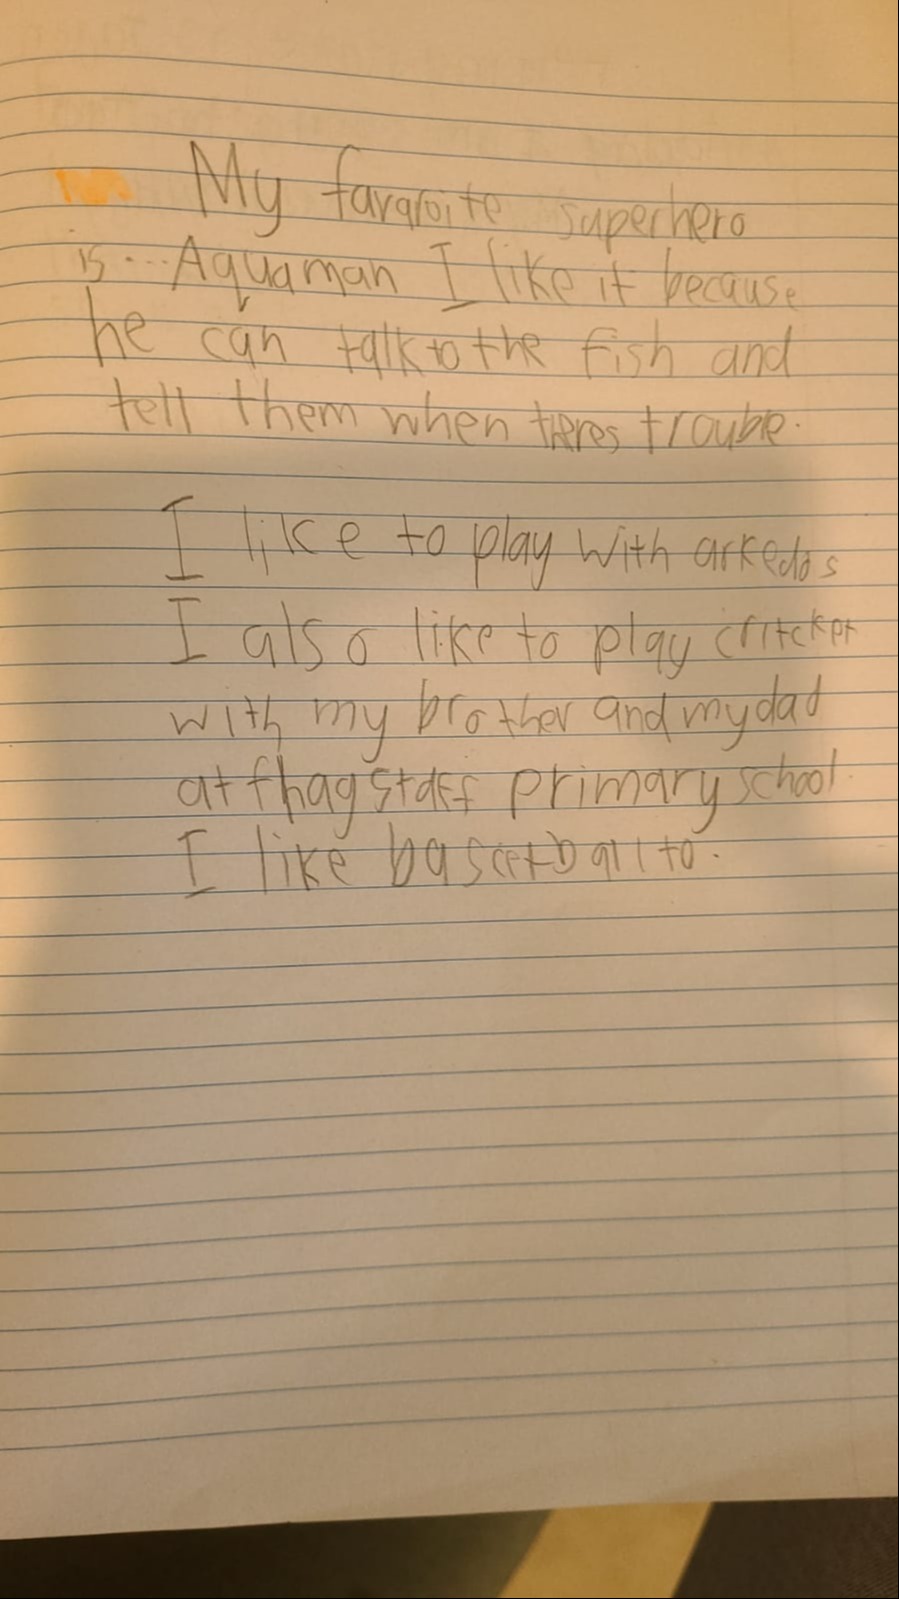 My favaroite superhero
is... Aquaman I like it because
he can talk to the fish and
tell them when theres trouble.
I like to play with arkedos
I also like to play critcket
with my brother and my dad
at fhagstaff primary school
I like bascetball to.